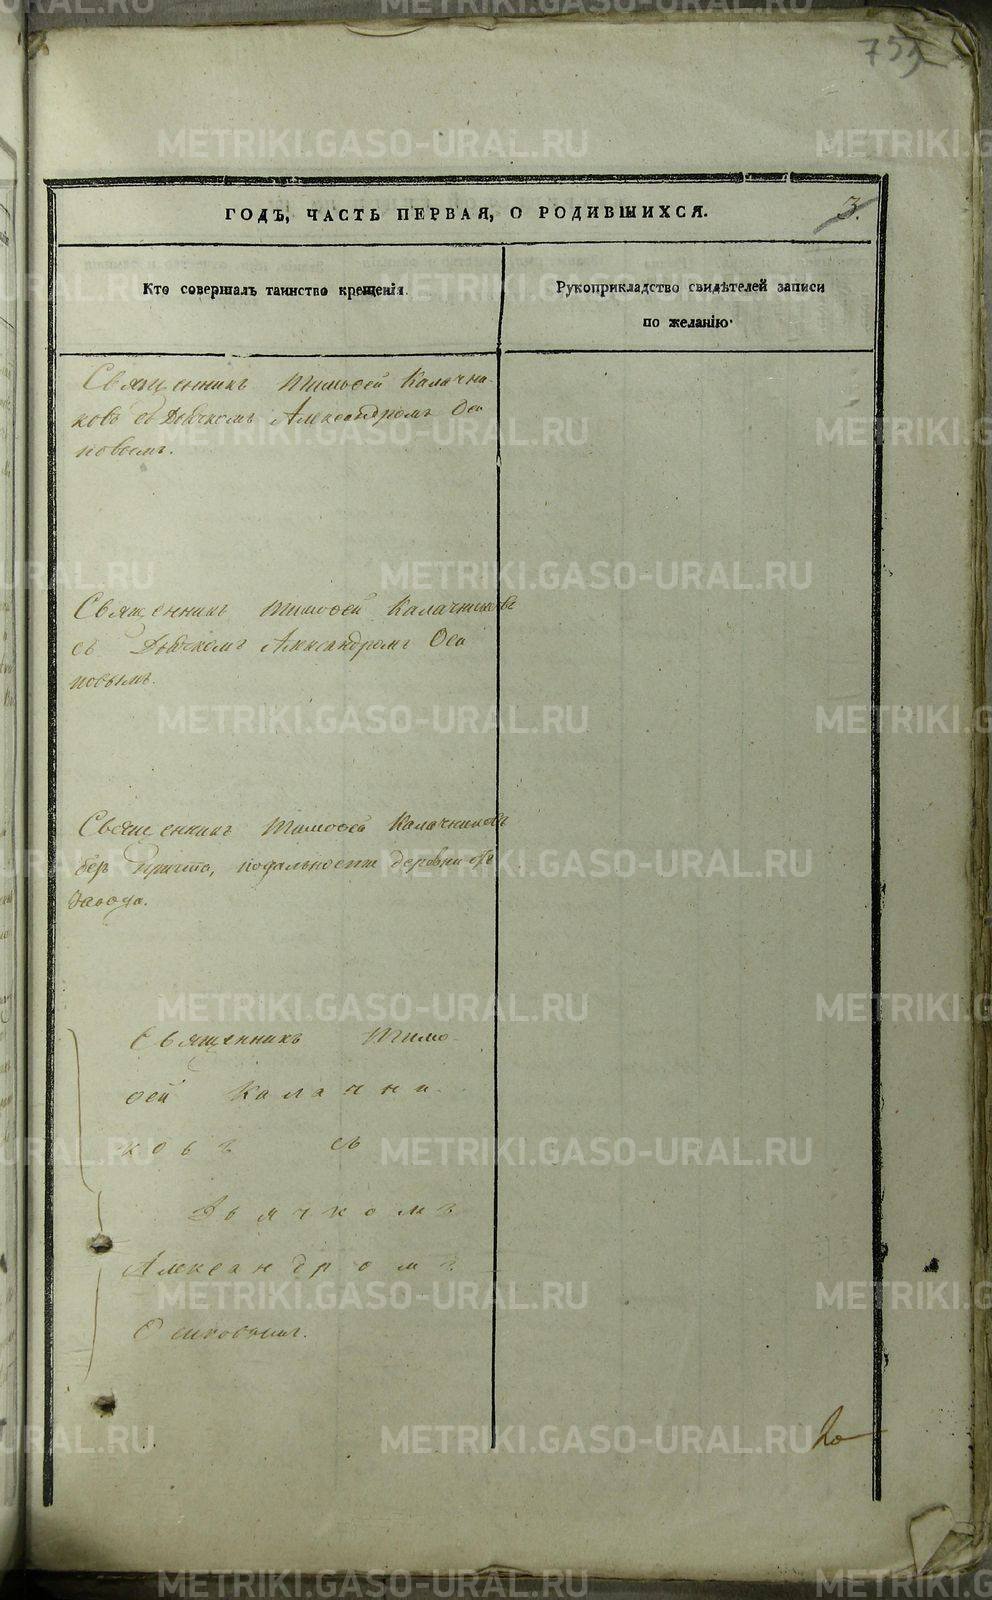 755
ГОДЪ, ЧАСТЬ ПЕРВАЯ, О РОДИВШИХСЯ.
3.
Кто совершалъ таинство крещенія.
Рукоприкладство свидѣтелей записи
по желанію.
Священникъ Тимоѳей Калачни-
ковъ съ Дьячкомъ Александромъ Оси
повымъ.
Священникъ Тимоѳей Калачниковъ
съ Дьячкомъ Александромъ Оси
повымъ.
Священникъ Тимоѳей Калачниковъ
безъ причта, подальности деревни отъ
Завода.
Священникъ Тимо-
ѳей Калачни-
ковъ съ
Дьячкомъ
Александромъ
Осиповымъ.
METRIKI.GASO-URAL.RU